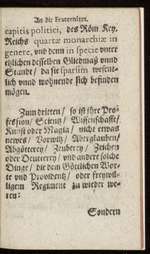 An die Fraternitet.
capitis politici, des Röm Key.
Reichs quartæ monarchiæ in
genere, und dann in specie unter
etlichen desselben Gliedmaß und
Stande / da sie sparsim wesent-
lich und wohnende sich befinden
mögen.
Zum dritten / so ist ihre Pro-
fession / Scientz / Wissenschafft /
Kunst oder Magia / nicht etwas
newes / Vorwitz / Aberglauben /
Abgötterey / Zeuberey / Zeichen
oder Deuterey / und andere solche
Dinge / die dem Göttlichen Wor-
te und Providentz / oder freywil-
ligem Regiment zu wieder we-
ren:
Sondern